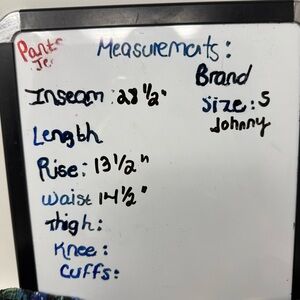 Pants
Measurements:
Brand
Inseam: 28 1/2"
Size: S
Johnny
Length
Rise: 13 1/2"
Waist 14 1/2"
Thigh:
Knee:
Cuffs: